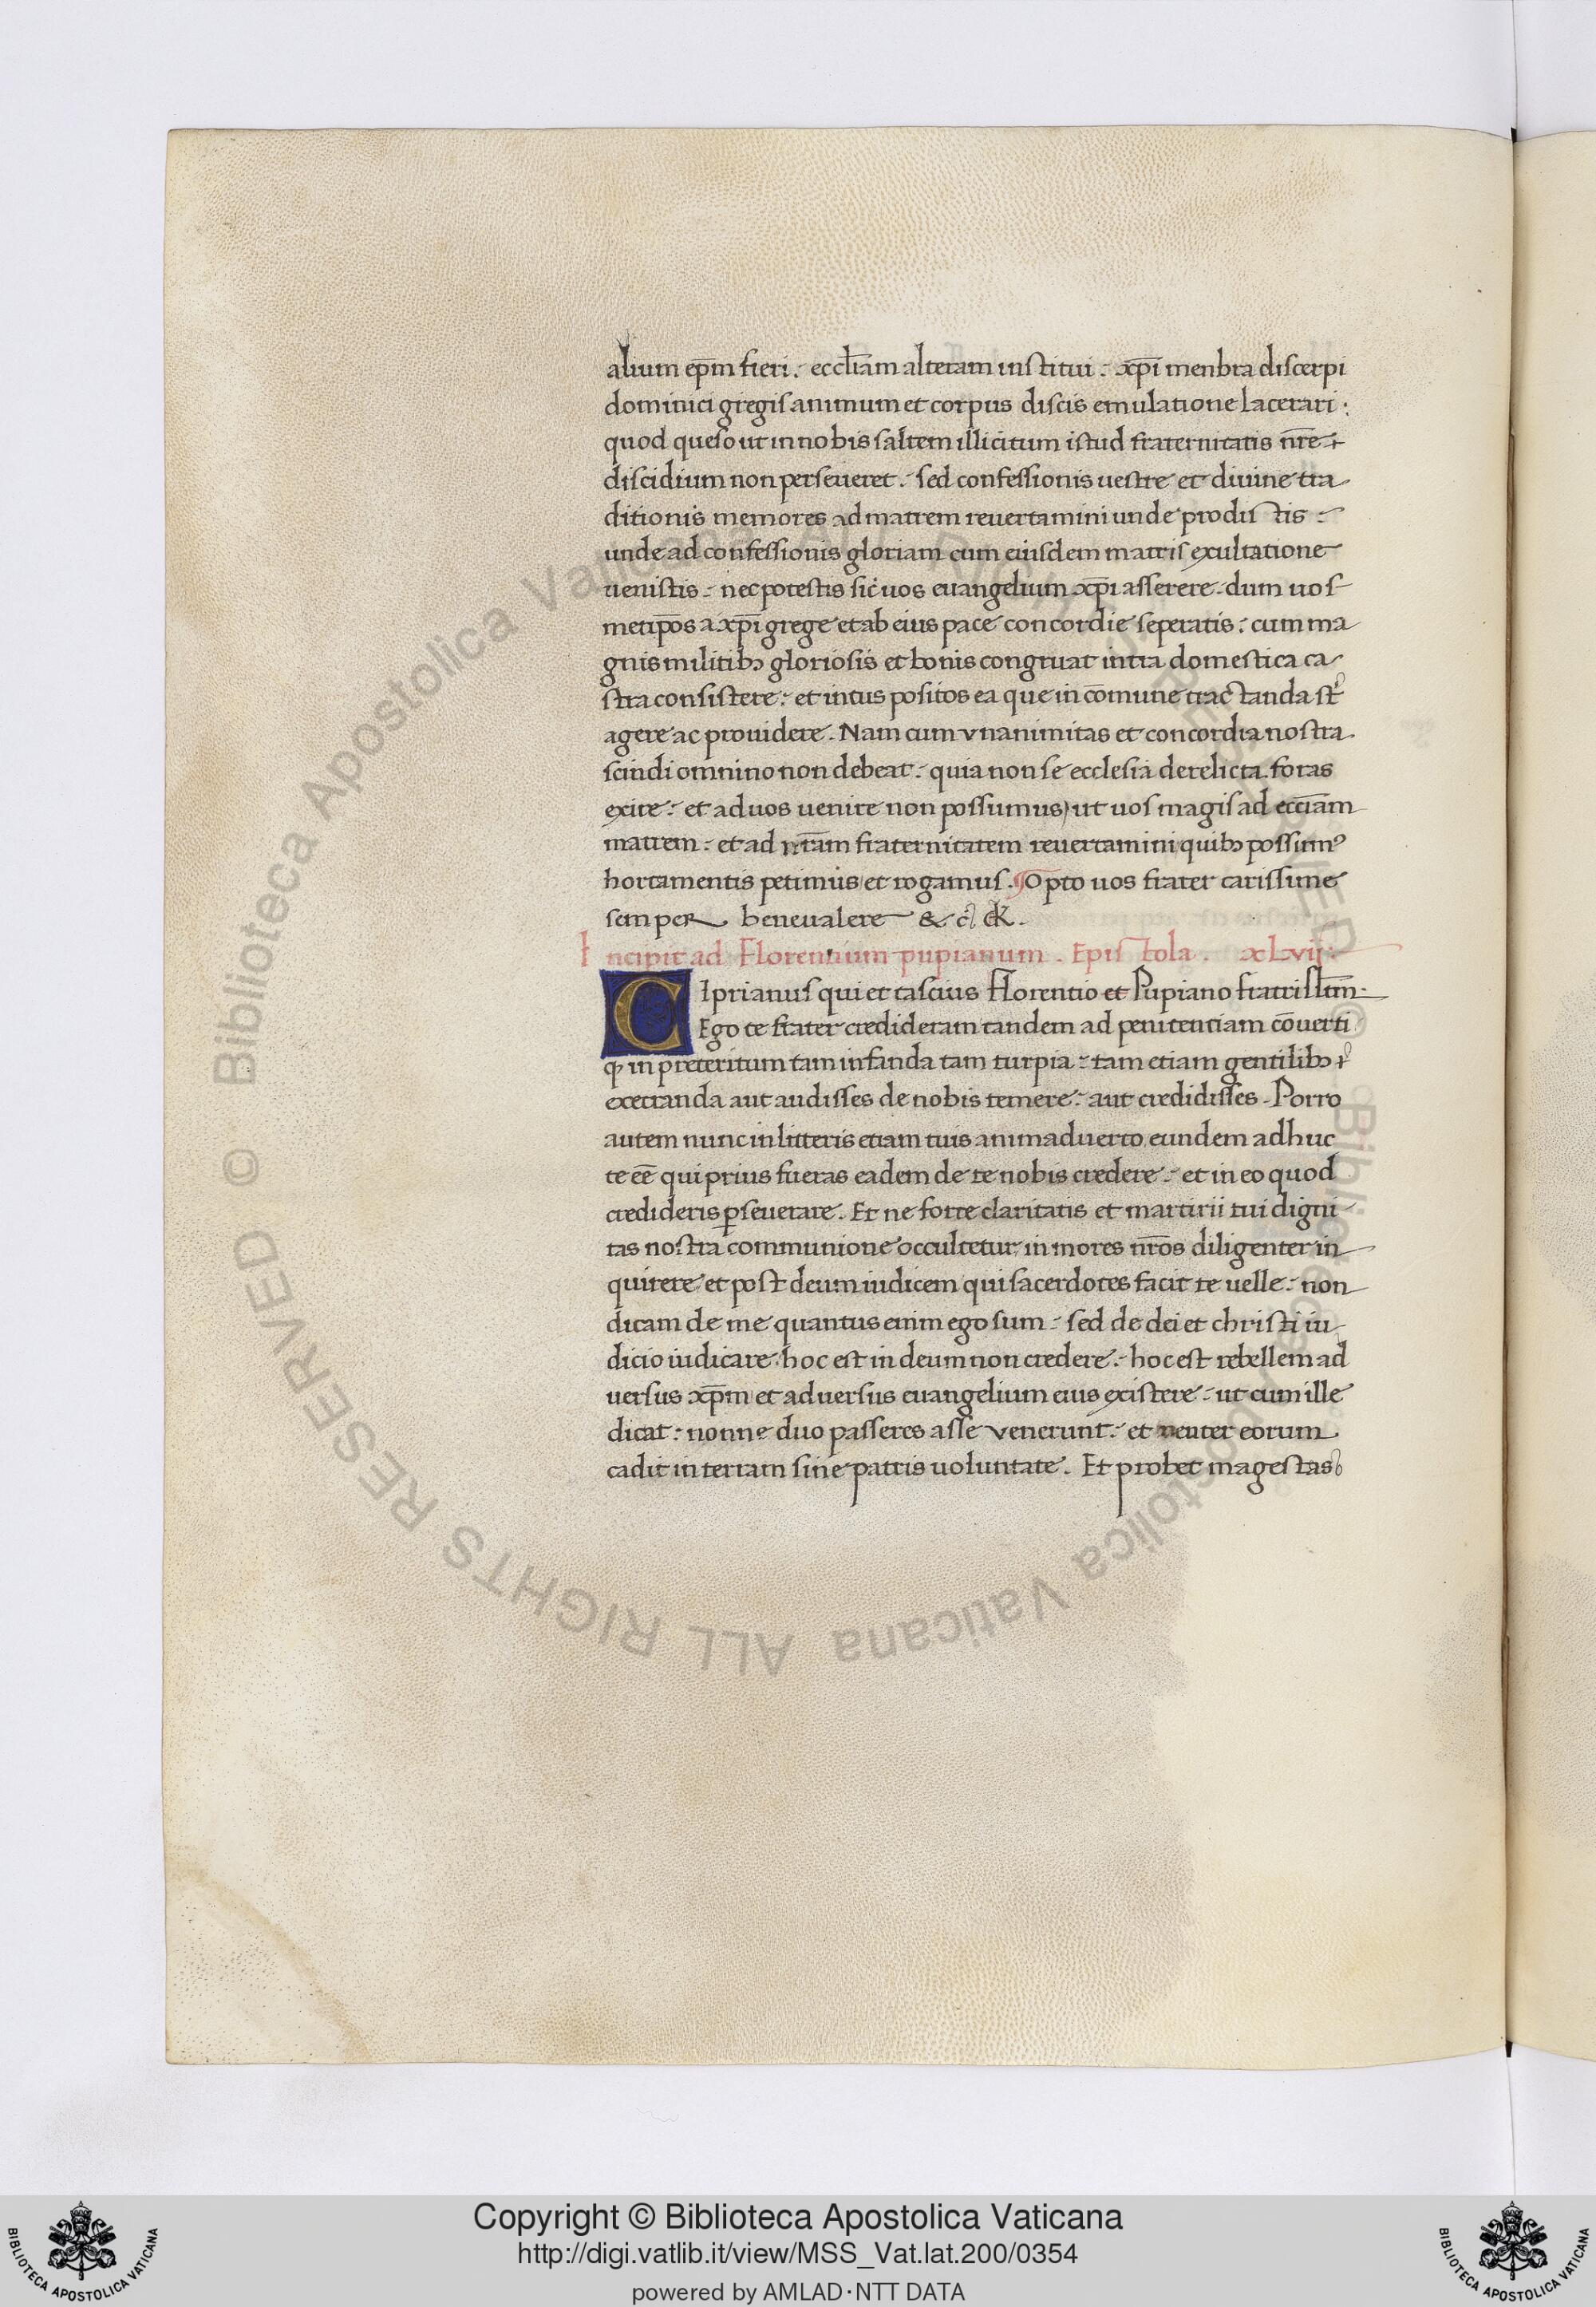 alium ep̄m fieri. eccl̄iam alteram institui. xp̄i menbra discerpi
dominici gregis animum et corpus discis emulatione lacerari:
quod queso ut in nobis saltem illicitum istud fraternitatis nr̄e
discidium non perseueret. sed confessionis uestre et diuine tra
ditionis memores ad matrem reuertamini unde prodiistis
unde ad confessionis gloriam cum eiusdem matris exultatione
uenistis. nec potestis sic uos euangelium xp̄i asserere. dum uos
metip̄os a xp̄i grege et ab eius pace concordie seperatis: cum ma
gnis militibꝫ gloriosis et bonis congruat intra domestica ca
stra consistere: et intus positos ea que in cōmune tractanda st̄
agere ac prouidere. Nam cum vnanimitas et concordia nostra
scindi omnino non debeat: quia non se ecclesia derelicta foras
exire: et ad uos uenire non possumus, ut uos magis ad ecc̄iam
matrem: et ad nr̄am fraternitatem reuertamini quibꝫ possumꝰ
hortamentis petimus et rogamus. Opto uos frater carissime
semper bene ualere &
Incipit ad Florentium pupianum. Epistola. xLvij:
Ciprianus qui et tascius Florentio et Pupiano fratri sl̄tm.
Ego te frater credideram tandem ad penitentiam cōuerti
ꝙ in preteritum tam infanda tam turpia: tam etiam gentilibꝫ
execranda aut audisses de nobis temere: aut credidisses. Porro
autem nunc in litteris etiam tuis animaduerto eundem adhuc
te eē qui prius fueras eadem de re nobis credere: et in eo quod
credideris ꝑseuerare. Et ne forte claritatis et martirii tui digni
tas nostra communione occultetur in mores nr̄os diligenter in
quirere et post deum iudicem qui sacerdotes facit te uelle: non
dicam de me quantus enim ego sum: sed de dei et christi iu
dicio iudicare. hoc est in deum non credere: hoc est rebellem ad
uersus xp̄m et aduersus euangelium eius existere: ut cum ille
dicat: nonne duo passeres asse venerunt: et neuter eorum
cadit in terram sine patris uoluntate. Et probet magestas
Copyright © Biblioteca Apostolica Vaticana
http://digi.vatlib.it/view/MSS_Vat.lat.200/0354
powered by AMLAD·NTT DATA
BIBLIOTECA APOSTOLICA VATICANA
BIBLIOTECA APOSTOLICA VATICANA
© Biblioteca Apostolica Vaticana ALL RIGHTS RESERVED
© Biblioteca Apostolica Vaticana ALL RIGHTS RESERVED